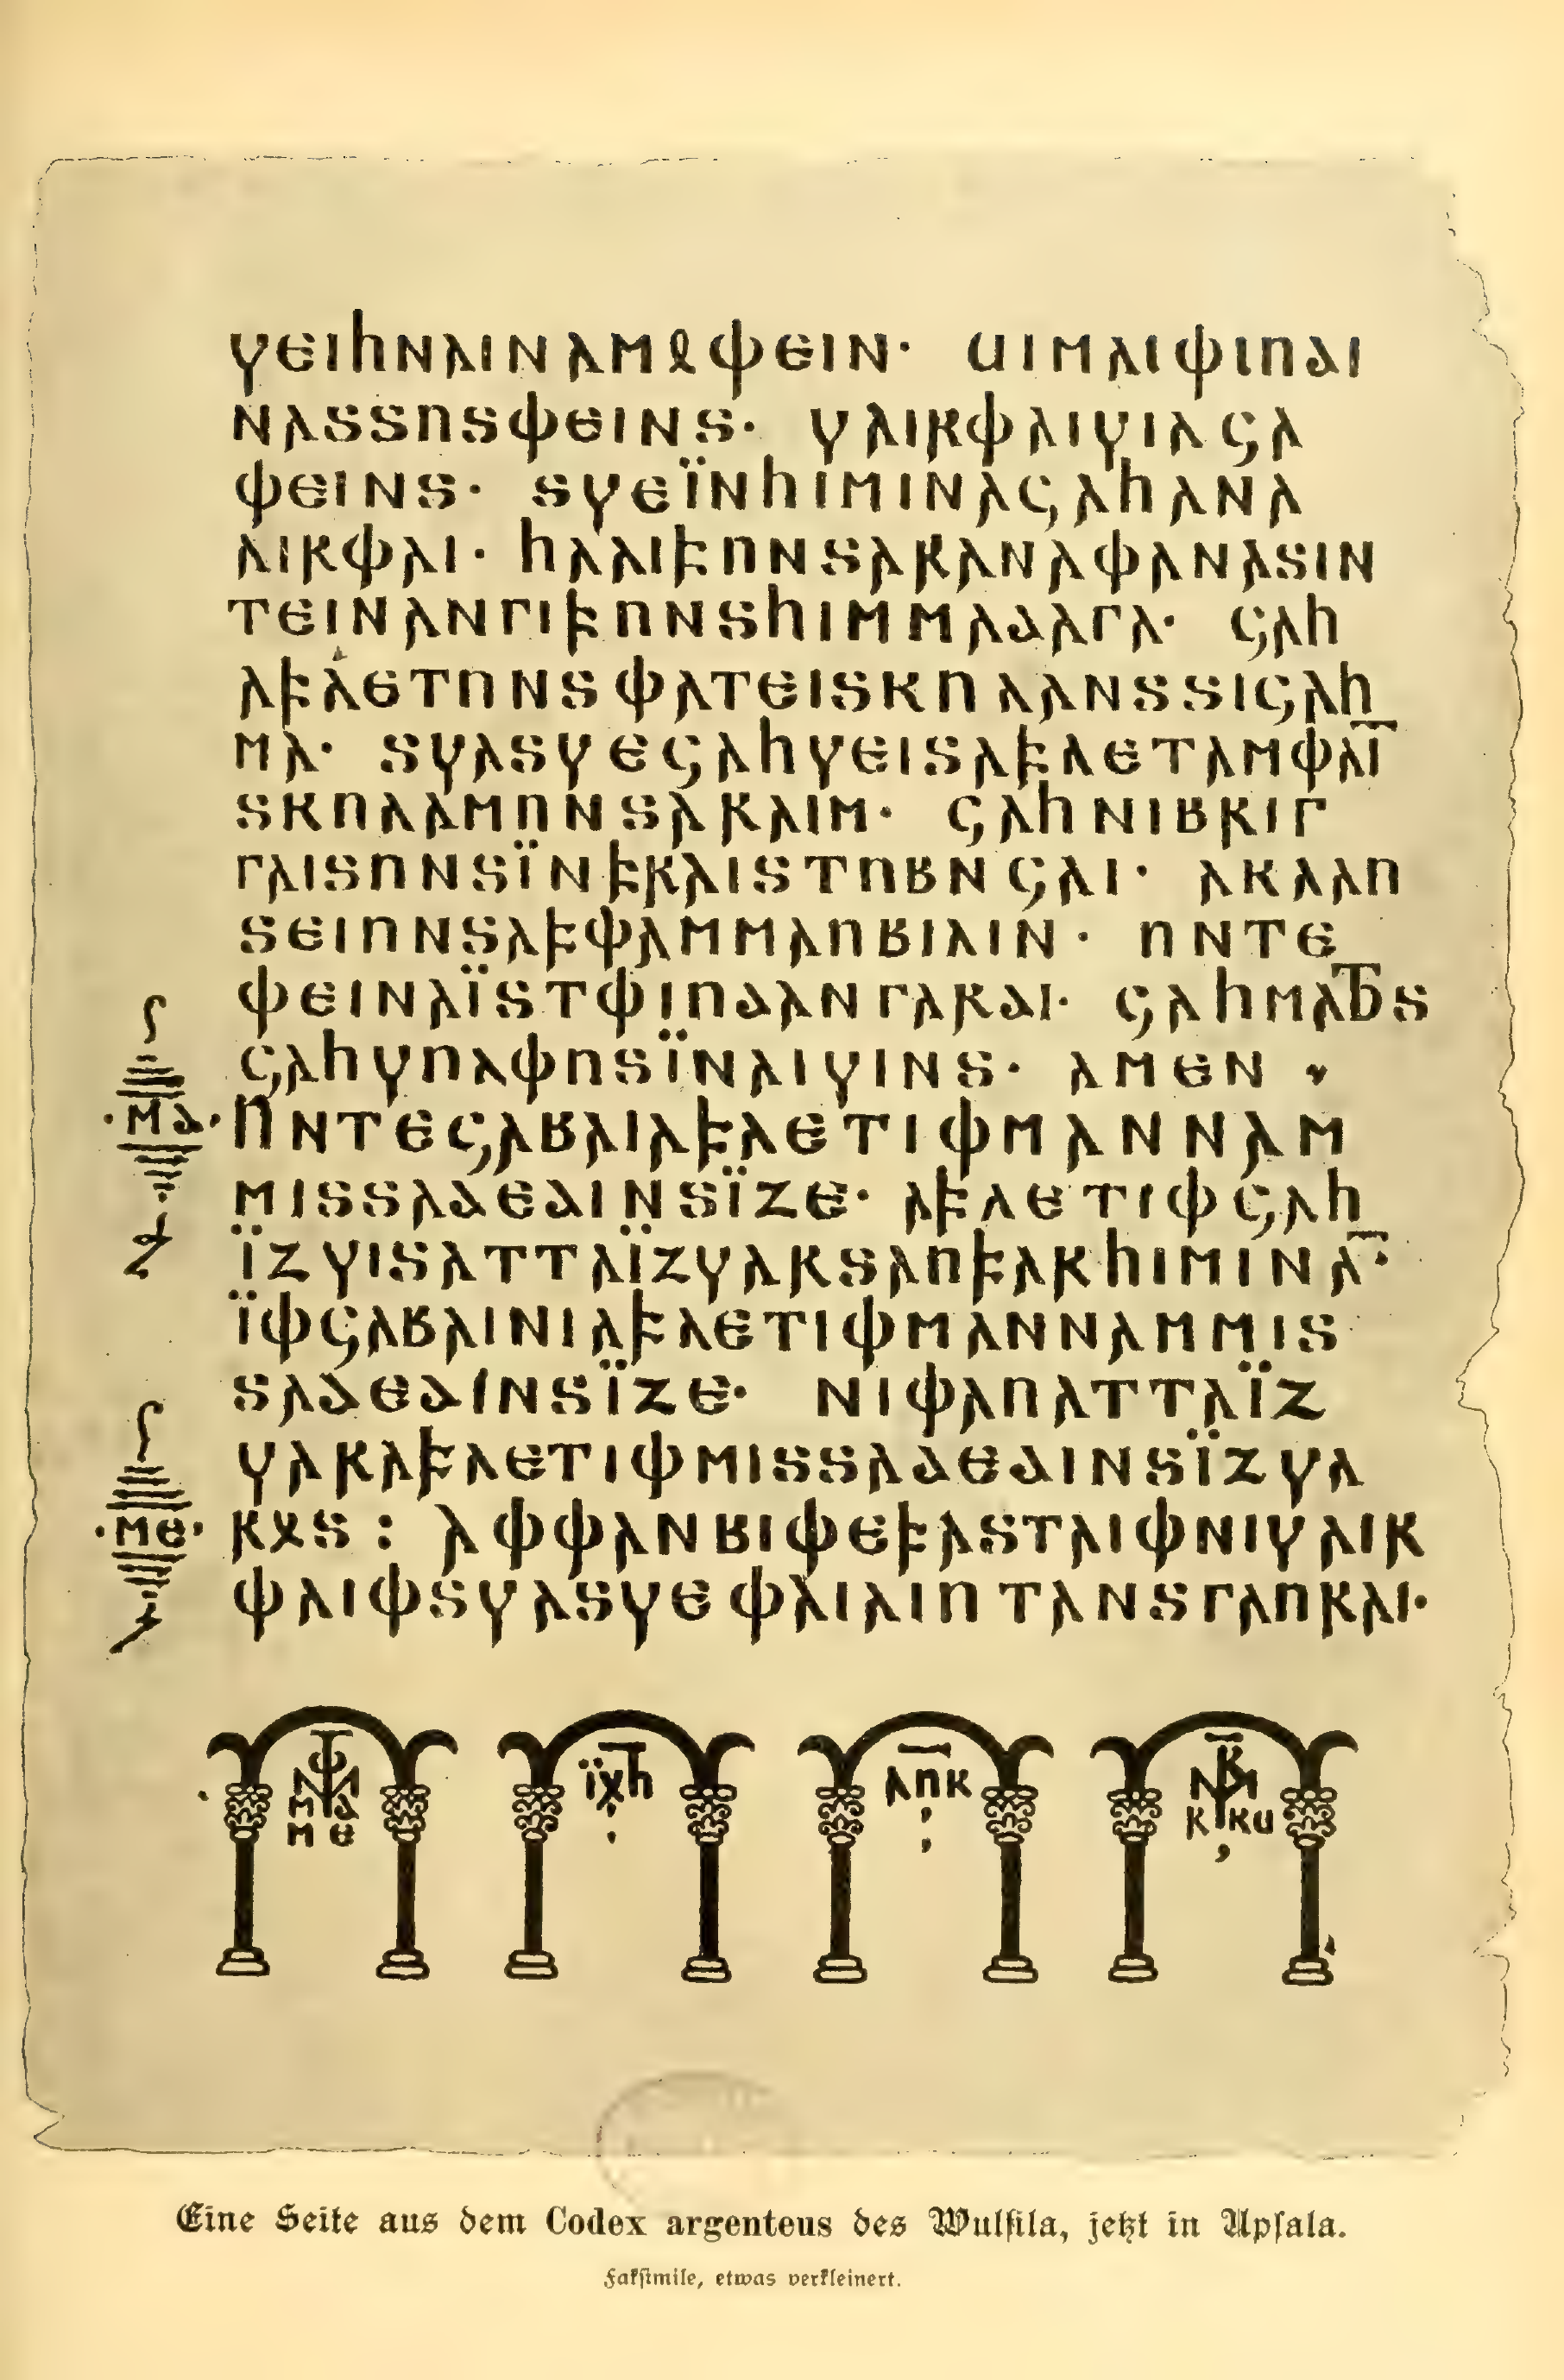 𐍅𐌴𐌹𐌷𐌽𐌰𐌹𐌽𐌰𐌼𐍉𐌸𐌴𐌹𐌽· 𐌵𐌹𐌼𐌰𐌹𐌸𐌹𐌿𐌳𐌹
𐌽𐌰𐍃𐍃𐌿𐍃𐌸𐌴𐌹𐌽𐍃· 𐍅𐌰𐌹𐍂𐌸𐌰𐌹𐍅𐌹𐌻𐌾𐌰
𐌸𐌴𐌹𐌽𐍃· 𐍃𐍅𐌴𐌹̈𐌽𐌷𐌹𐌼𐌹𐌽𐌰𐌾𐌰𐌷𐌰𐌽𐌰
𐌰𐌹𐍂𐌸𐌰𐌹· 𐌷𐌻𐌰𐌹𐍆𐌿𐌽𐍃𐌰𐍂𐌰𐌽𐌰𐌸𐌰𐌽𐌰𐍃𐌹𐌽
𐍄𐌴𐌹𐌽𐌰𐌽𐌲𐌹𐍆𐌿𐌽𐍃𐌷𐌹𐌼𐌼𐌰𐌳𐌰𐌲𐌰· 𐌾𐌰𐌷
𐌰𐍆𐌻𐌴𐍄𐌿𐌽𐍃𐌸𐌰𐍄𐌴𐌹𐍃𐌺𐌿𐌻𐌰𐌽𐍃𐍃𐌹𐌾𐌰𐌷
𐌼𐌰· 𐍃𐍅𐌰𐍃𐍅𐌴𐌾𐌰𐌷𐍅𐌴𐌹𐍃𐌰𐍆𐌻𐌴𐍄𐌰𐌼𐌸𐌰𐌹̅
𐍃𐌺𐌿𐌻𐌰𐌼𐌿𐌽𐍃𐌰𐍂𐌰𐌹𐌼· 𐌾𐌰𐌷𐌽𐌹𐌱𐍂𐌹𐌲
𐌲𐌰𐌹𐍃𐌿𐌽𐍃𐌹̈𐌽𐍆𐍂𐌰𐌹𐍃𐍄𐌿𐌱𐌽𐌾𐌰𐌹· 𐌰𐌺𐌻𐌰𐌿
𐍃𐌴𐌹𐌿𐌽𐍃𐌰𐍆𐌸𐌰𐌼𐌼𐌰𐌿𐌱𐌹𐌻𐌹𐌽· 𐌿𐌽𐍄𐌴
𐌸𐌴𐌹𐌽𐌰𐌹̈𐍃𐍄𐌸𐌹𐌿𐌳𐌰𐌽𐌲𐌰𐍂𐌳𐌹· 𐌾𐌰𐌷𐌼𐌰𐌷𐍄𐍃
𐌾𐌰𐌷𐍅𐌿𐌻𐌸𐌿𐍃𐌹̈𐌽𐌰𐌹𐍅𐌹𐌽𐍃· 𐌰𐌼𐌴𐌽
·𐌼𐌳· 𐌿𐌽𐍄𐌴𐌾𐌰𐌱𐌰𐌹𐌰𐍆𐌻𐌴𐍄𐌹𐌸𐌼𐌰𐌽𐌽𐌰𐌼
𐌼𐌹𐍃𐍃𐌰𐌳𐌴𐌳𐌹𐌽𐍃𐌹̈𐌶𐌴· 𐌰𐍆𐌻𐌴𐍄𐌹𐌸𐌾𐌰𐌷
𐌹̈𐌶𐍅𐌹𐍃𐌰𐍄𐍄𐌰𐌹̈𐌶𐍅𐌰𐍂𐍃𐌰𐌿𐍆𐌰𐍂𐌷𐌹𐌼𐌹𐌽𐌰̅·
𐌹̈𐌸𐌾𐌰𐌱𐌰𐌹𐌽𐌹𐌰𐍆𐌻𐌴𐍄𐌹𐌸𐌼𐌰𐌽𐌽𐌰𐌼𐌼𐌹𐍃
𐍃𐌰𐌳𐌴𐌳𐌹𐌽𐍃𐌹̈𐌶𐌴· 𐌽𐌹𐌸𐌰𐌿𐌰𐍄𐍄𐌰𐌹̈𐌶
𐍅𐌰𐍂𐌰𐍆𐌻𐌴𐍄𐌹𐌸𐌼𐌹𐍃𐍃𐌰𐌳𐌴𐌳𐌹𐌽𐍃𐌹̈𐌶𐍅𐌰
·𐌼𐌴· 𐍂𐍉𐍃: 𐌰𐌸𐌸𐌰𐌽𐌱𐌹𐌸𐌴𐍆𐌰𐍃𐍄𐌰𐌹𐌸𐌽𐌹𐍅𐌰𐌹𐍂
𐌸𐌰𐌹𐌸𐍃𐍅𐌰𐍃𐍅𐌴𐌸𐌰𐌹𐌻𐌹𐌿𐍄𐌰𐌽𐍃𐌲𐌰𐌿𐍂𐌰𐌹·
𐌼𐌳
𐌼𐌴
𐌹̈𐍉𐌷
𐌻𐌿𐌺
Eine Seite aus dem Codex argenteus des Wulfila, jetzt in Upsala.
Faksimile, etwas verkleinert.